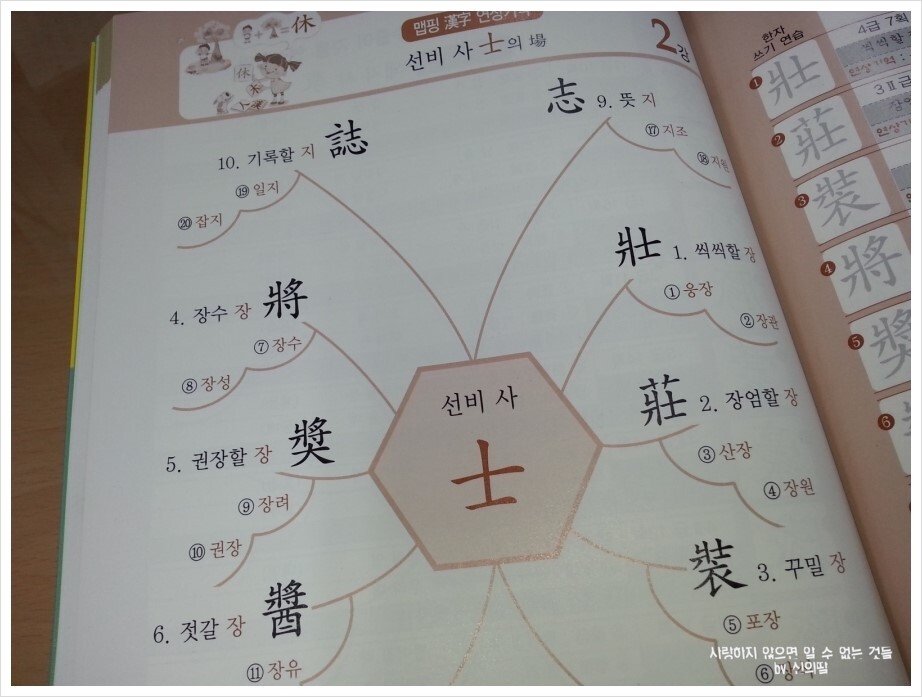 맵핑 漢字 연상기억
선비 사 士의 場
2강
休
志 9. 뜻 지
⑰ 지조
⑱ 지원
10. 기록할 지 誌
⑲ 일지
⑳ 잡지
壯 1. 씩씩할 장
① 웅장
② 장관
4. 장수 장 將
⑦ 장수
⑧ 장성
선비 사
士
莊 2. 장엄할 장
③ 산장
④ 장원
5. 권장할 장 奬
⑨ 장려
⑩ 권장
裝 3. 꾸밀 장
⑤ 포장
⑥
6. 젓갈 장 醬
⑪ 장유
한자
쓰기 연습
4급 7획
씩씩할
연상기억 :
1 壯
3Ⅱ급
2 莊
3 裝
4 將
5 奬
6
사랑하지 않으면 알 수 없는 것들
by 신의딸